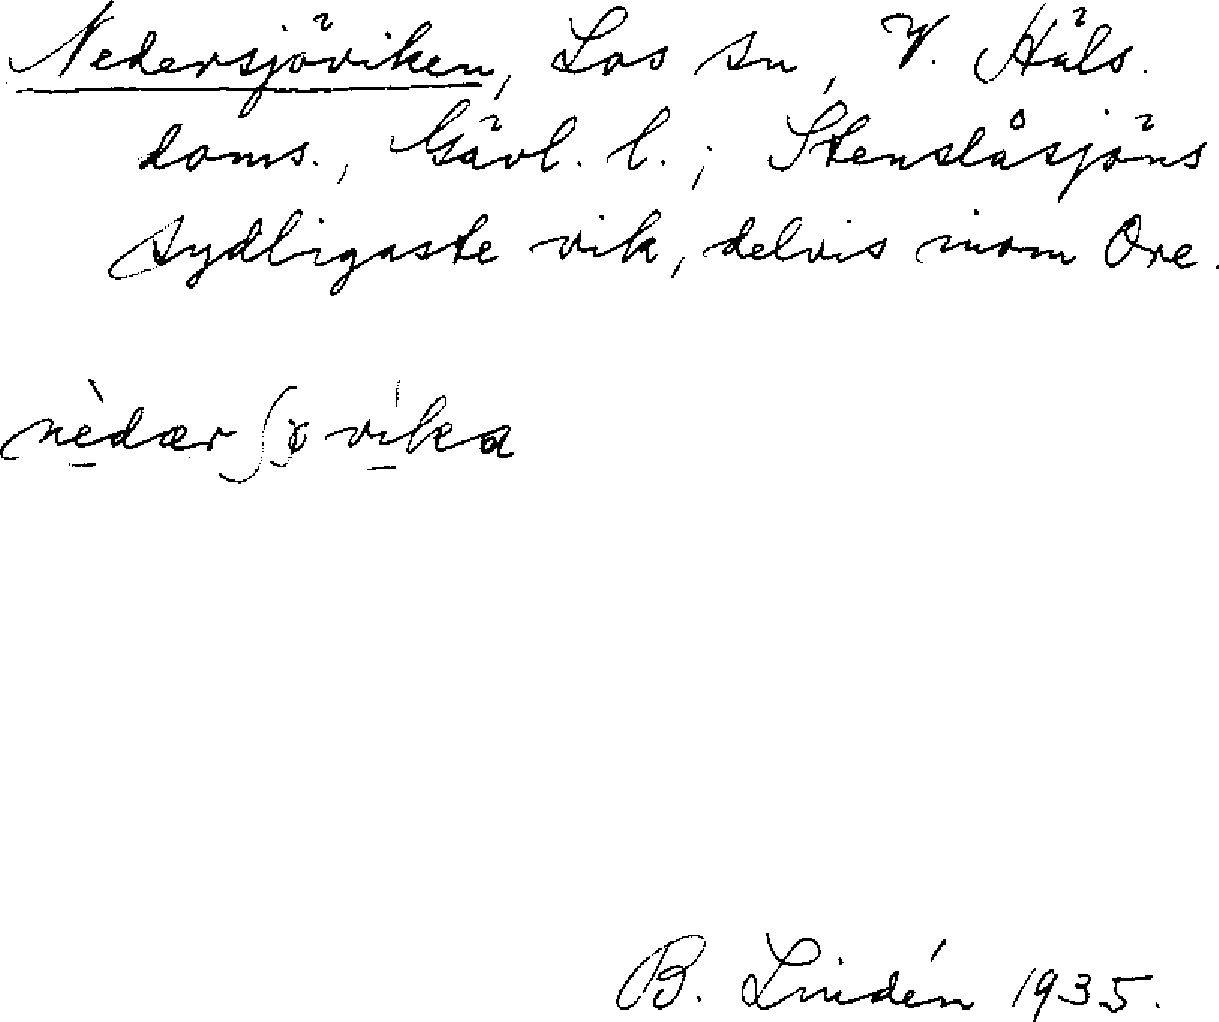 Nedersjöviken, Los sn, V. Häls.
doms., Gävl. l.; Stenslåsjöns
sydligaste vik, delvis inom Ore.
B. Lindén 1935.